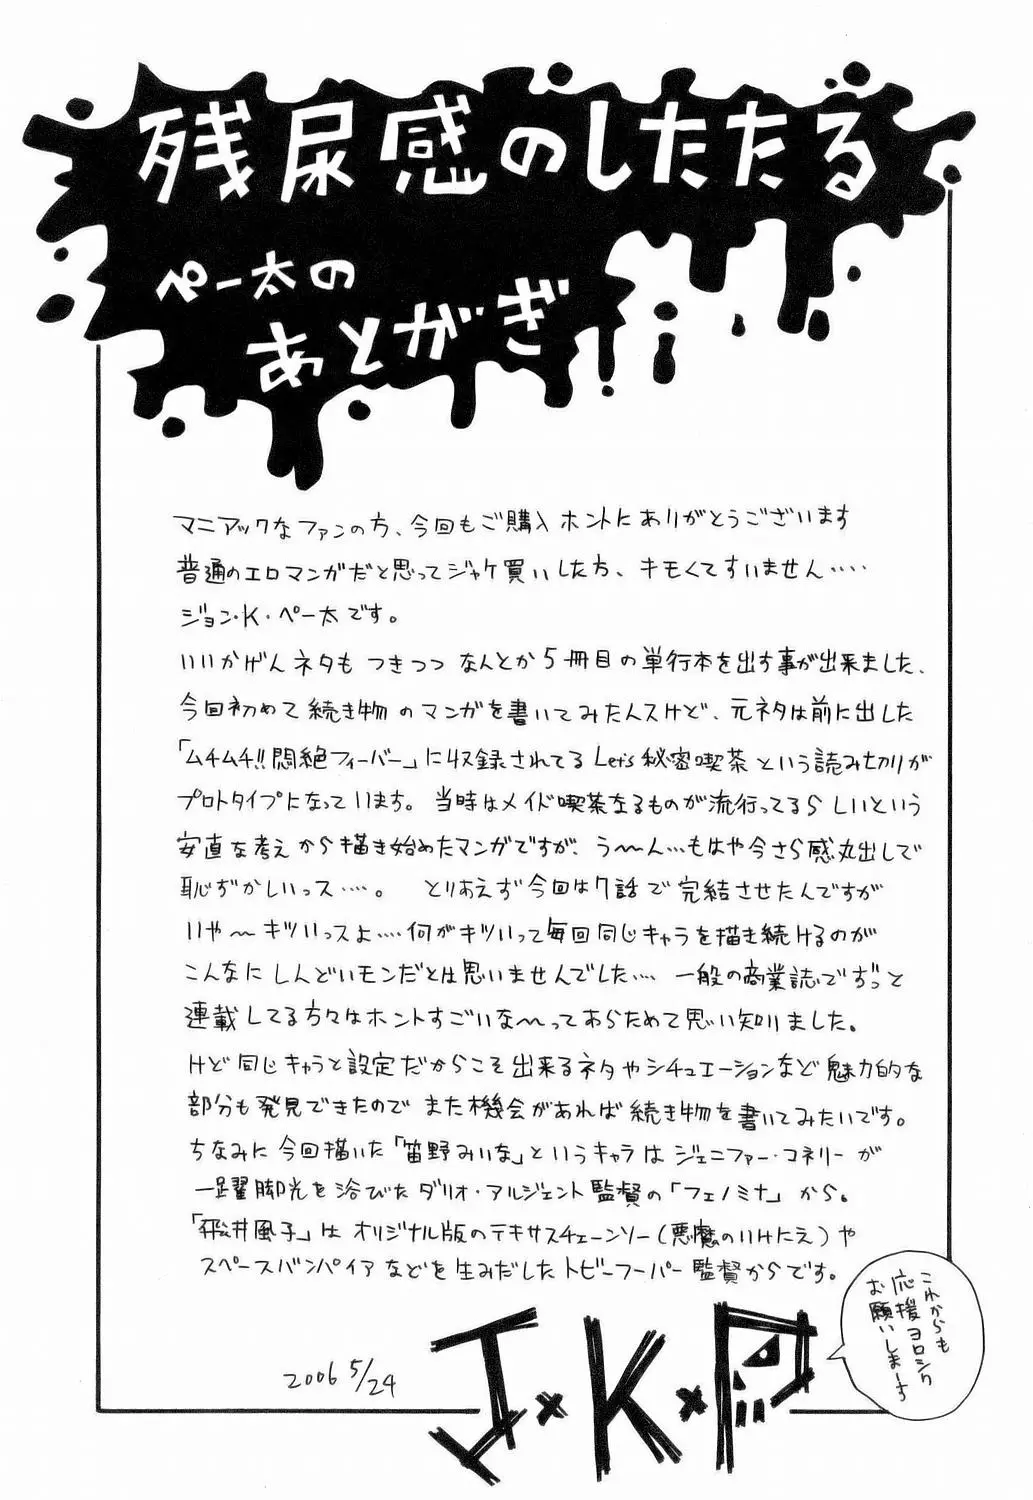 残尿感のしたたる
ぺー太の
あとがき
マニアックなファンの方、今回もご購入ホントにありがとうございます
普通のエロマンガだと思ってジャケ買いした方、キモくてすいません‥‥
ジョン・K・ペー太です。
いいかげんネタもつきつつなんとか5冊目の単行本を出す事が出来ました、
今回初めて続き物のマンガを書いてみたんスけど、元ネタは前に出した
「ムチムチ!!悶絶フィーバー」に収録されてるLet's秘密喫茶という読み切りが
プロトタイプになっています。当時はメイド喫茶なるものが流行ってるらしいという
安直な考えから描き始めたマンガですが、う〜ん…もはや今さら感丸出しで
恥ずかしいっス‥‥。とりあえず今回は7話で完結させたんですが
いや〜キツいっスよ‥‥何がキツいって毎回同じキャラを描き続けるのが
こんなにしんどいモンだとは思いませんでした‥‥一般の商業誌でずっと
連載してる方々はホントすごいな〜ってあらためて思い知りました。
けど同じキャラと設定だからこそ出来るネタやシチュエーションなど魅力的な
部分も発見できたのでまた機会があれば続き物を書いてみたいです。
ちなみに今回描いた「笛野みいな」というキャラはジェニファー・コネリーが
一躍脚光を浴びたダリオ・アルジェント監督の「フェノミナ」から。
「飛井風子」はオリジナル版のテキサスチェーンソー(悪魔のいけにえ)や
スペースバンパイアなどを生みだしたトビーフーパー監督からです。
これからも
応援ヨロシク
お願いしまーす
2006 5/24
J×K×P